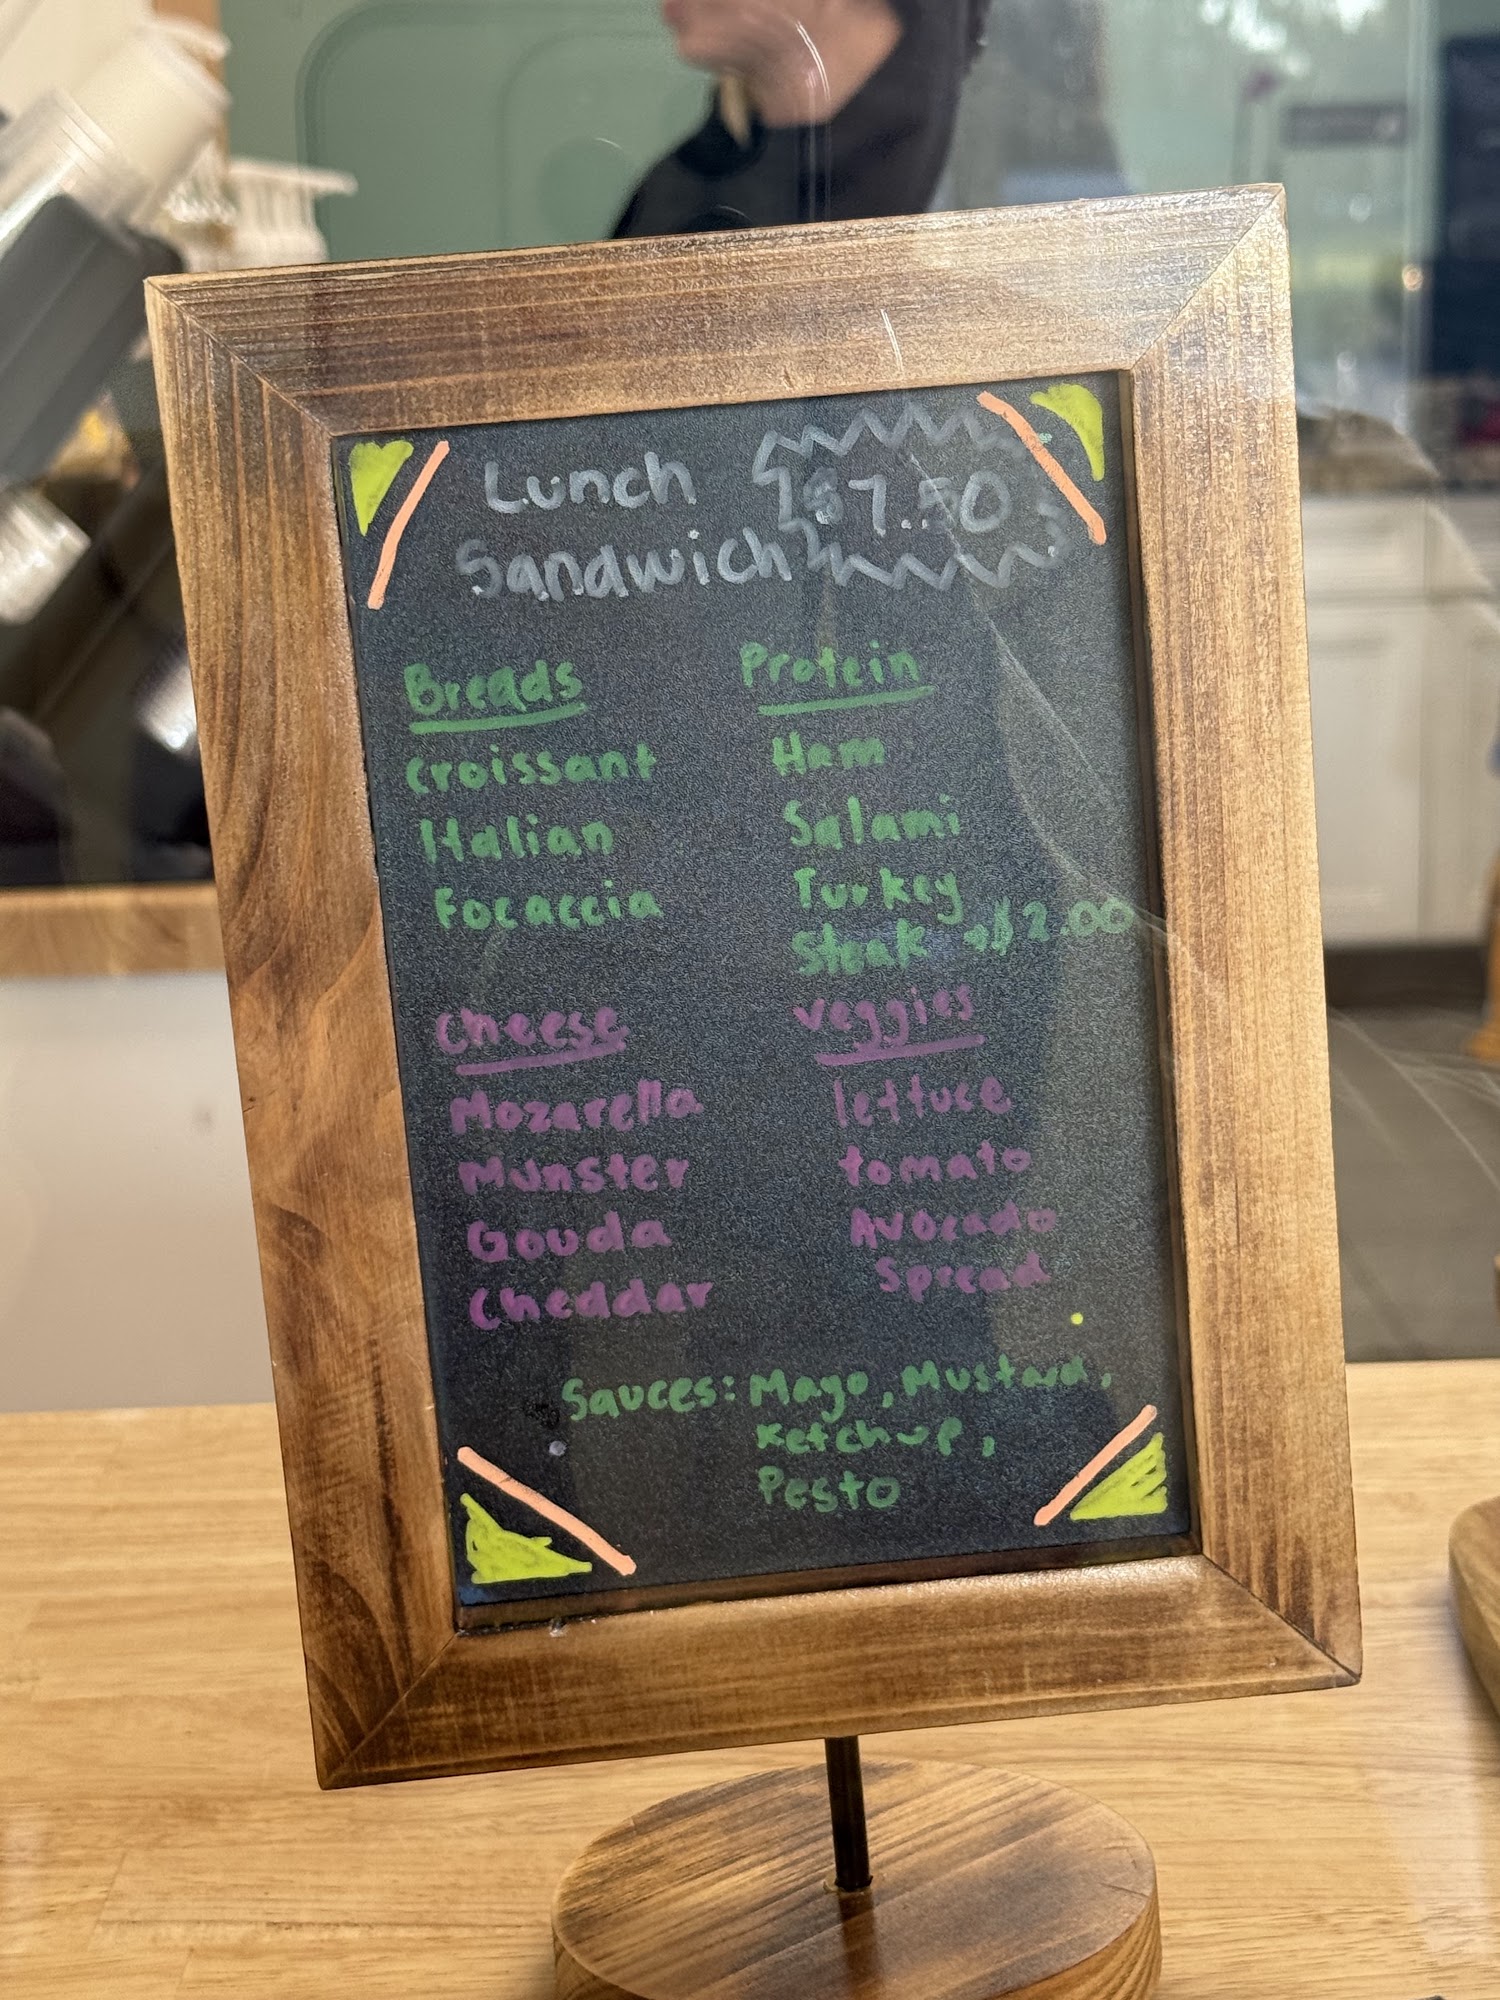 Lunch
Sandwich
$7.50
Breads
Croissant
Italian
Focaccia
Protein
Ham
Salami
Turkey
Steak +$2.00
Cheese
Mozarella
Munster
Gouda
Cheddar
Veggies
lettuce
tomato
Avocado
Spread
Sauces: Mayo, Mustard,
Ketchup,
Pesto